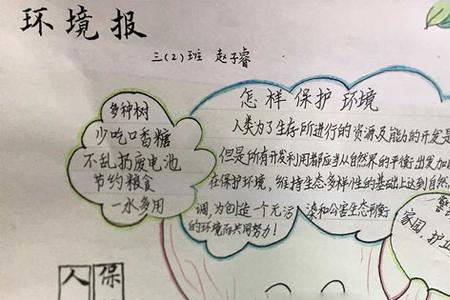 环境报
三(2)班 赵子睿
多种树
少吃口香糖
不乱扔废电池
节约粮食
一水多用
怎样保护环境
人类为了生存所进行的资源及能力的开发是
但是所有开发利用都应当从自然界的平衡出发加以
在保护环境，维持生态多样性的基础上达到自然
调，为创造一个无污染和公害生态平衡
的环境而共同努力！
家园，护卫
人
保